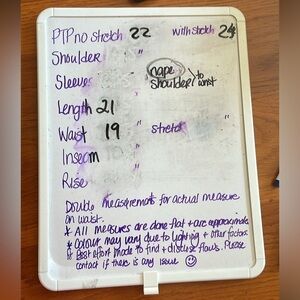 PTP no stretch 22 with stretch 24
Shoulder "
Sleeves nape to
shoulder wrist
Length 21 "
Waist 19 " stretch
Inseam "
Rise "
Double measurements for actual measure
on waist.
* All measures are done flat + are approximate
* Colour may vary due to lighting + other factors
* Best effort made to find + disclose flaws. Please
contact if there is any issue ☺